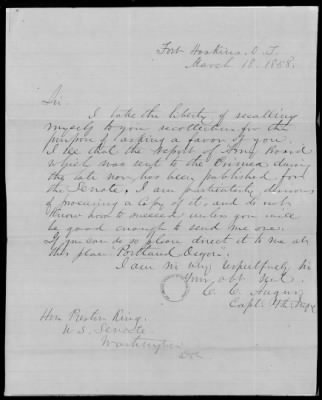 Fort Hoskins. O. T.
March 18. 1858.
Sir.
I take the liberty of recalling
myself to your recollection for the
purpose of asking a favor of you.
I see that the Report of Army Board
which was sent to the Crimea during
the late war, has been published for
the Senate. I am particularly desirous
of procuring a copy of it, and do not
know how to succeed unless you will
be good enough to send me one.
If you can do so please direct it to me at
this place Portland Oregon.
I am Sir very respectfully Sir
Your obt Svt.
C. C. Augur
Capt. 4th Infy
Hon. Preston King.
U. S. Senate
Washington